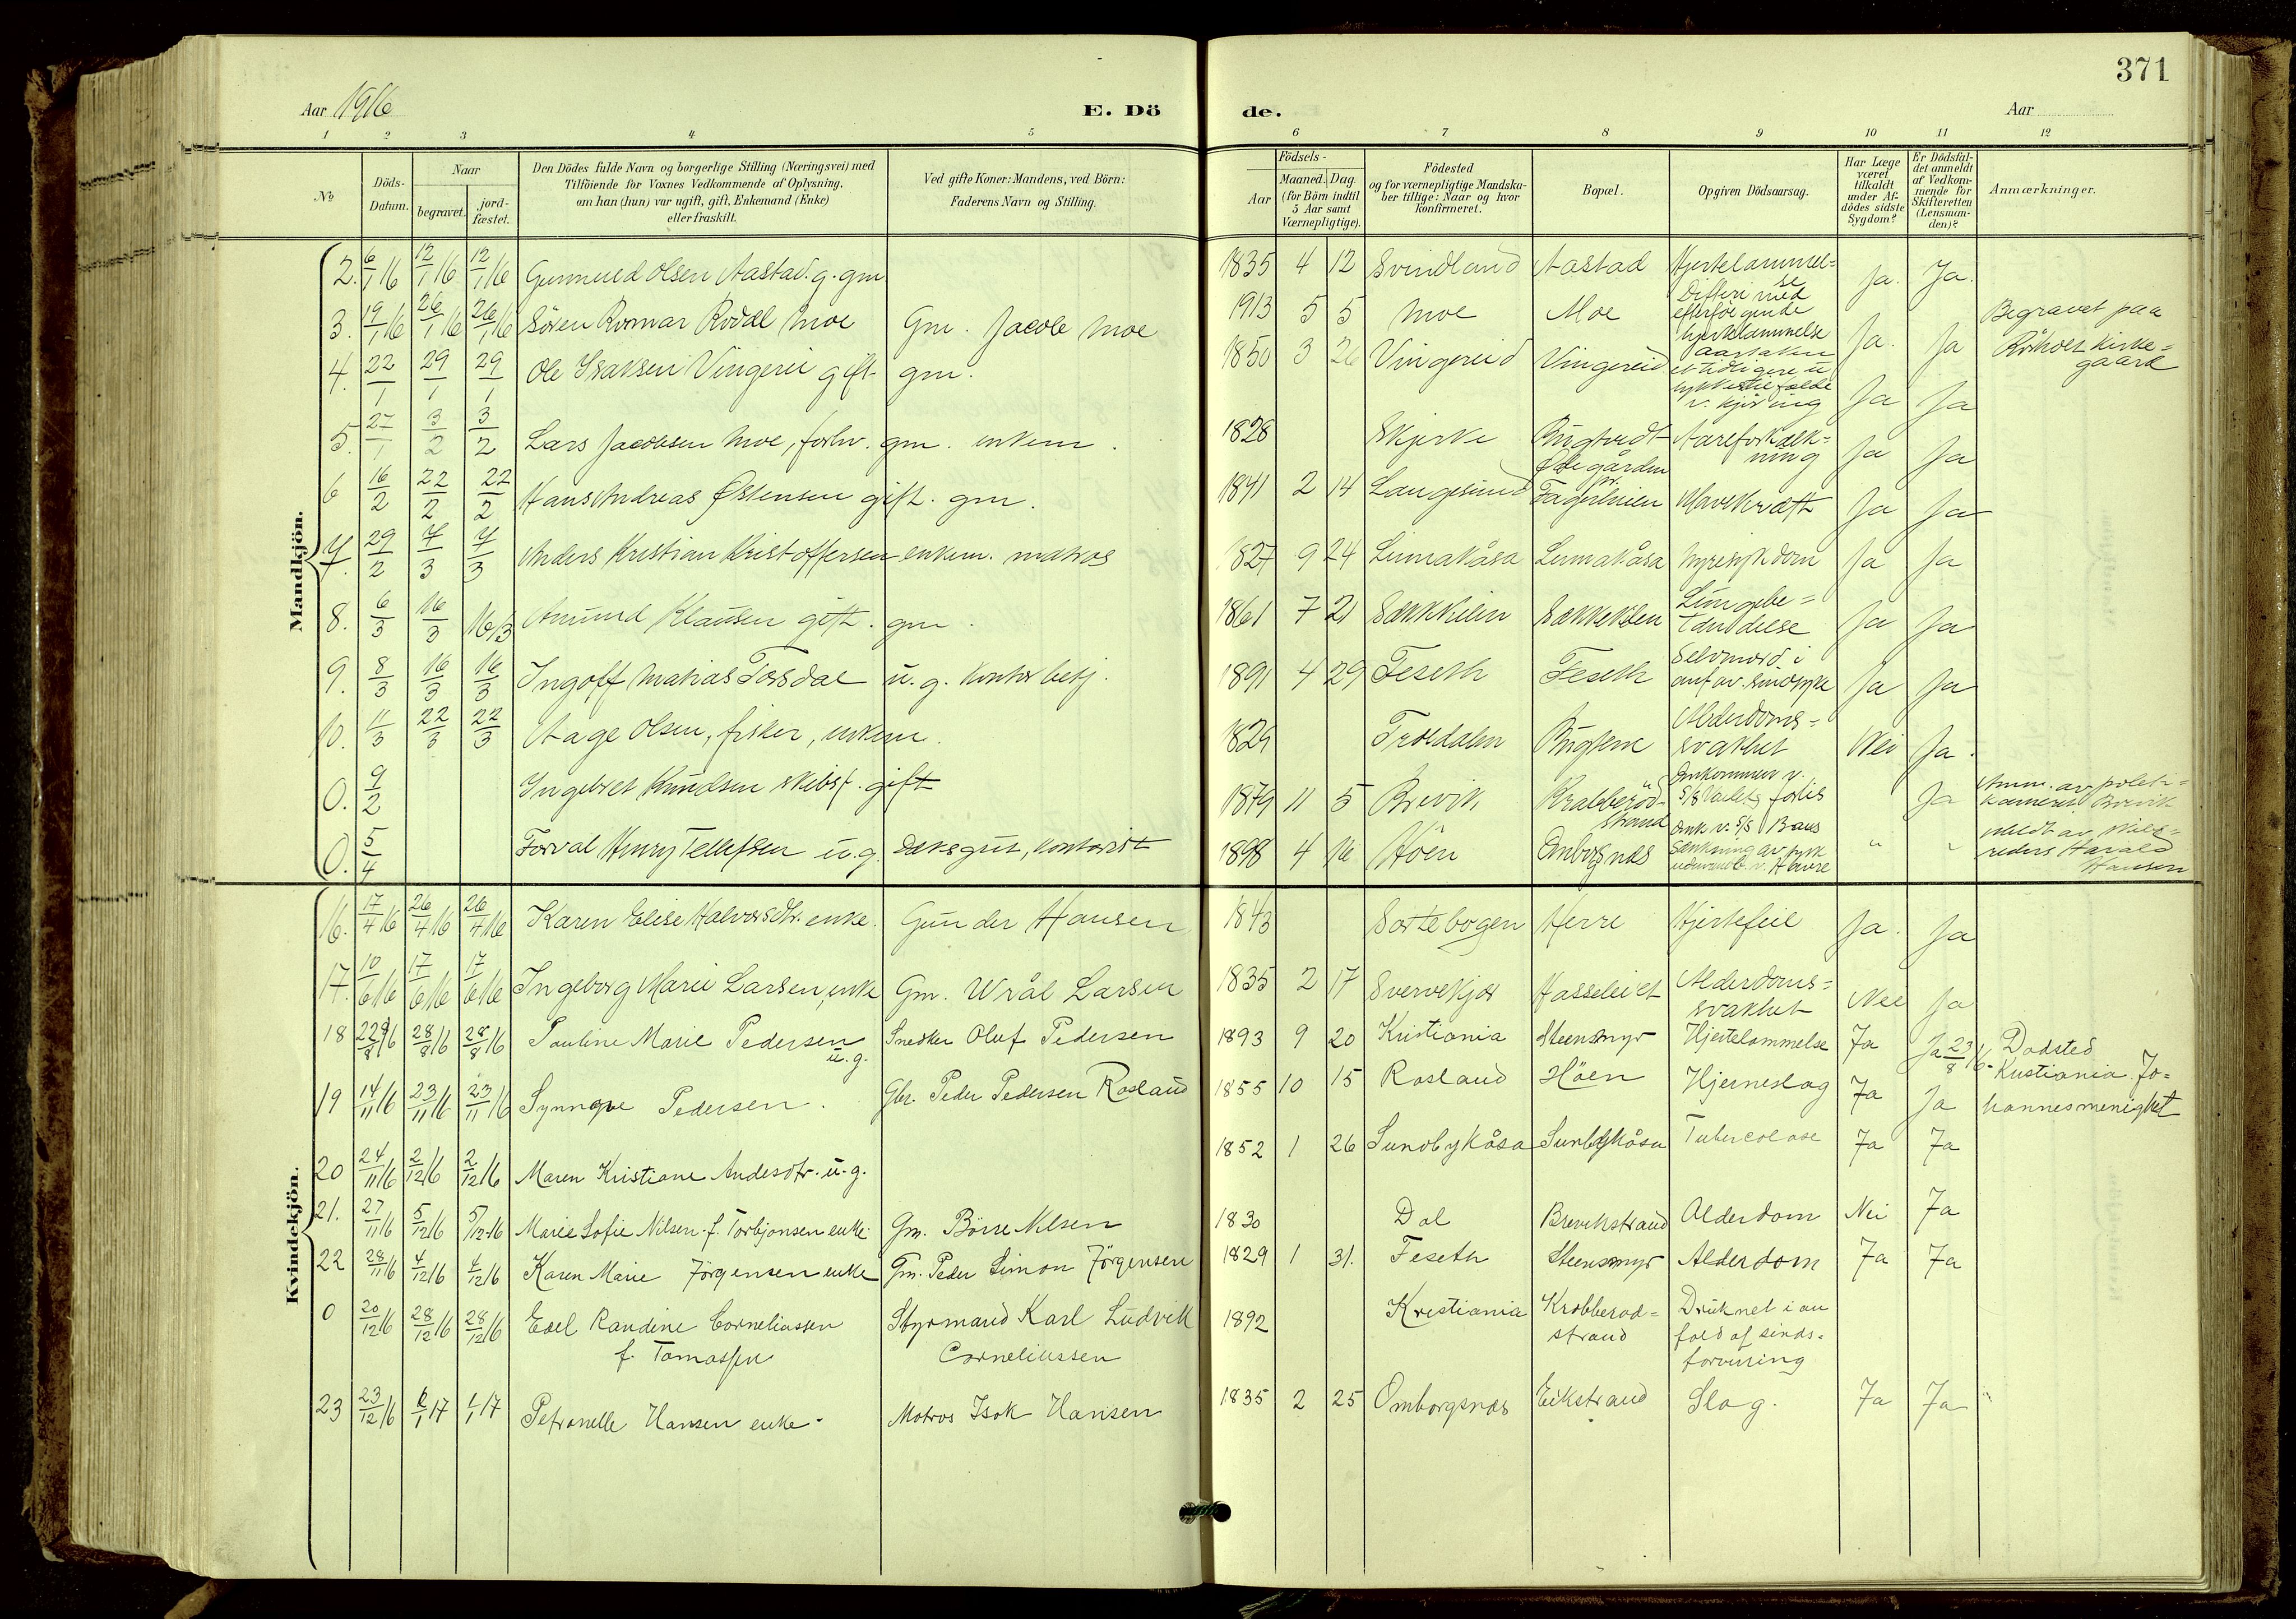 371
Aar 1916
E. Dö
de.
Aar
1 2 3 4 5 6 7 8 9 10 11 12
№
Döds-Datum.
Naar
begravet.
jord-fæstet.
Den Dödes fulde Navn og borgerlige Stilling (Næringsvei) med
Tilföiende for Voxnes Vedkommende af Oplysning,
om han (hun) var ugift, gift, Enkemand (Enke)
eller fraskilt.
Ved gifte Koner: Mandens, ved Börn:
Faderens Navn og Stilling.
Födsels-
Aar
Maaned. Dag.
(for Börn indtil
5 Aar samt
Værnepligtige).
Födested
og for værnepligtige Mandska-
ber tillige: Naar og hvor
konfirmeret.
Bopæl.
Opgiven Dödsaarsag.
Har Læge
været
tilkaldt
under Af-
dödes sidste
Sygdom?
Er Dödsfal-
det anmeldt
af Vedkom-
mende for
Skifteretten
(Lensman-
den)?
Anmærkninger.
Mandkjön.
2. 6/1 16 12/1 16 12/1 16 Gunmund Olsen Aastad. g. gm. 1835 4 12 Svindland Aastad Hjertelammel=
se Ja. Ja.
3. 19/1 16 26/1 16 26/1 16 Sören Romar Rodal Moe Gm. Jacob Moe 1913 5 5 Moe Moe Difteri med
efterfölgende
hjertelammelse Ja. Ja Begravet paa
kirke=
gaard
4. 22/1 29/1 29/1 Ole Isaksen Vingerei gift gm. 1850 3 26 Vingereid Vingereid
et tidligere u
v. kjöring Ja Ja
5. 27/1 3/2 3/2 Lars Jacobsen Moe, forhv. gm. enkem. 1828 Skjerke Aareforkalk=
ning Ja Ja
6 16/2 22/2 22/2 Hans Andreas Østensen gift. gm. 1841 2 14 Langesund Ødegården
Mavekræft Ja Ja
7. 29/2 7/3 7/3 Anders Kristian Kristoffersen enkem. matros 1827 9 24 Linnakåsa Linnakåsa Nyresykdom Ja Ja
8. 6/3 16/3 16/3 Amund Klausen gift. gm. 1861 7 21 Lungebe=
tændelse Ja Ja
9. 8/3 16/3 16/3 Ingolf Matias Tosdal u. g. kontorbetj. 1891 4 29 Feseth Feseth Selvmord i
anf av. sindssyke Ja Ja
10. 11/3 22/3 22/3 Aage Olsen, fisker, enkem. Trosdalen Alderdoms=
svakhet Nei Ja.
0. 9/2 Ingebret Knudsen skibsf. gift 1879 11 5 Brevik Krabberöd
strand Omkommen v.
forlis Ja Anm. av politi=
kammeret Brevik
0. 5/4 Torval Henry Tellefsen u. g. dæksgut, kontorist 1898 4 16 Höen Ombogsnæs Omk v. S/S Baus
sænkning av tysk
v. Havre " " meldt av skibs=
reders Harald
Hansen
Kvindekjön.
16. 17/4 16 26/4 16 26/4 16 Karen Elise Halvorsdtr. enke. Gunder Hansen 1843 Sortebogen Herre Hjertefeil Ja. Ja
17. 10/6 16 17/6 16 17/6 16 Ingeborg Marie Larsen, enke Gm. Wrål Larsen 1835 2 17 Svervekjær Hasseleiet Alderdoms=
svakhet Nei Ja
18 22/8 16 28/8 16 28/8 16 Pauline Marie Pedersen
u. g. Snedker Oluf Pedersen 1893 9 20 Kristiania Steensmyr Hjertelammelse Ja Ja 23/8 16. Dödsted
Kristiania Jo=
hannesmenighet
19 14/11 16 23/11 16 23/11 16 Synnøve Pedersen. Gbr. Peder Pedersen Rosland 1855 10 15 Rosland Höen Hjerneslag Ja Ja
20 24/11 16 2/12 16 2/12 16 Maren Kristiane Andersdtr. u. g. 1852 1 26 Sundbykåsa Sundbykåsa Tuberculose Ja Ja
21. 27/11 16 5/12 16 5/12 16 Marie Sofie Nilsen f. Torbjonsen enke. Gm. Börre Nilsen 1830 Dal Brevikstrand Alderdom Nei Ja
22 28/11 16 4/12 16 4/12 16 Karen Marie Jörgensen enke Gm. Peder Simon Jörgensen 1829 1 31. Feseth Steensmyr Alderdom Ja Ja
0 20/12 16 28/12 16 28/12 16 Edel Randine Corneliussen
f. Tomassen Styrmand Karl Ludvik
Corneliussen 1892 Kristiania Krabberöd=
strand Druknet i an
fald af sinds=
forvirring
23 23/12 16 6/1 17 6/1 17 Petronelle Hansen enke - Matros Isak Hansen 1835 2 25 Omborgsnæs Eikstrand Slag. Ja Ja